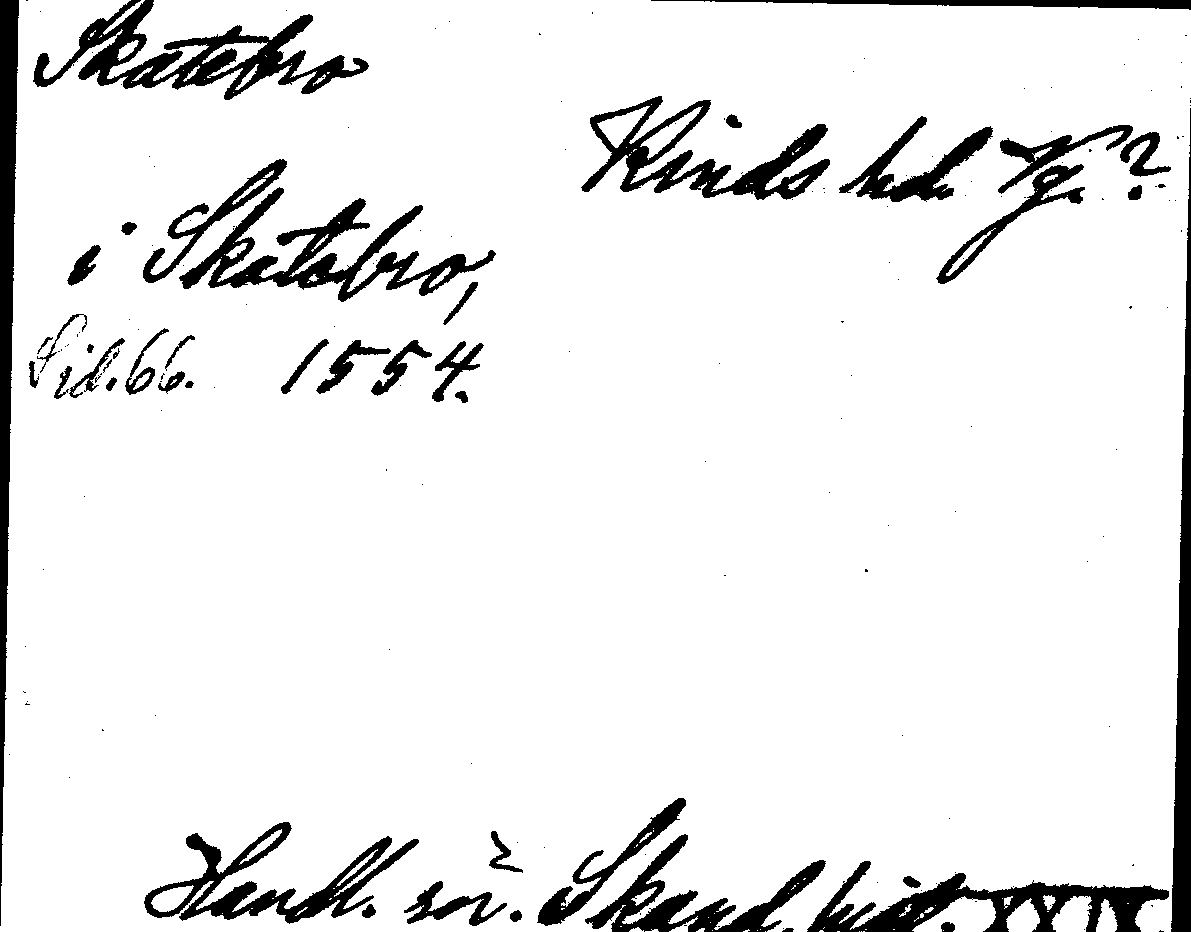 Skatebro
Kinds hd. Vg.?
i Skatebro,
Sid. 66. 1554.
Handl. rör. Skand. hist. XXIX.